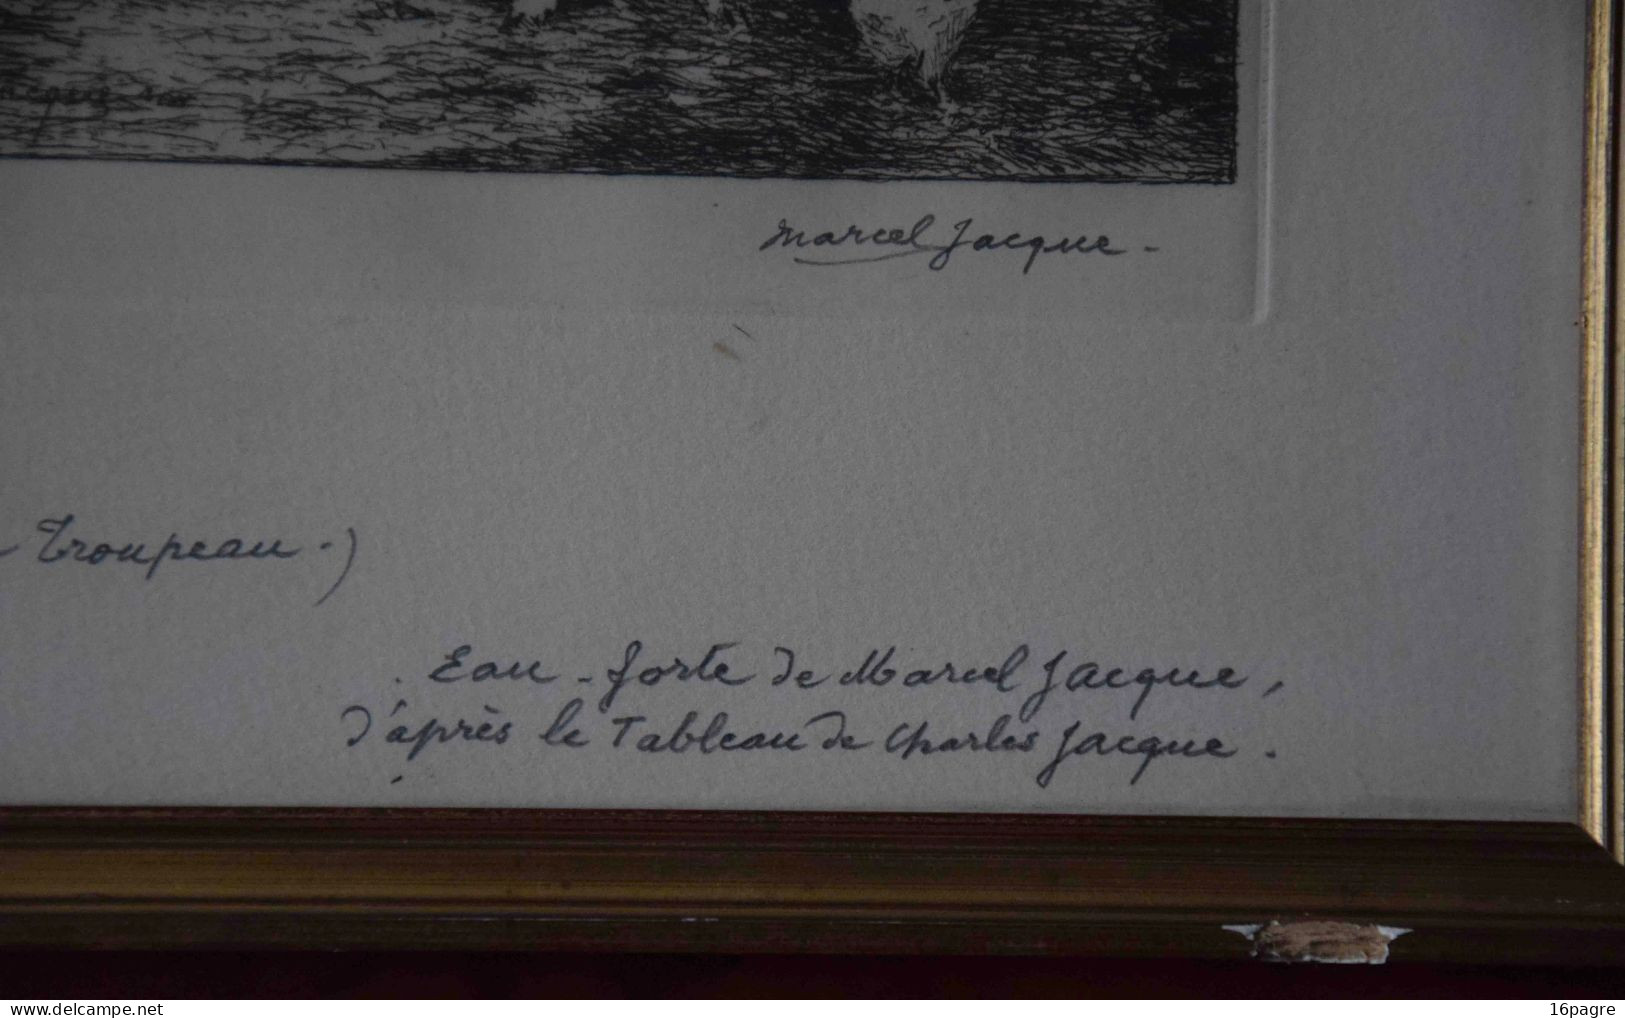 Jacque
Marcel Jacque -
Troupeau -)
Eau-forte de Marcel Jacque,
d'après le Tableau de Charles Jacque.
www.delcampe.net
16pagre